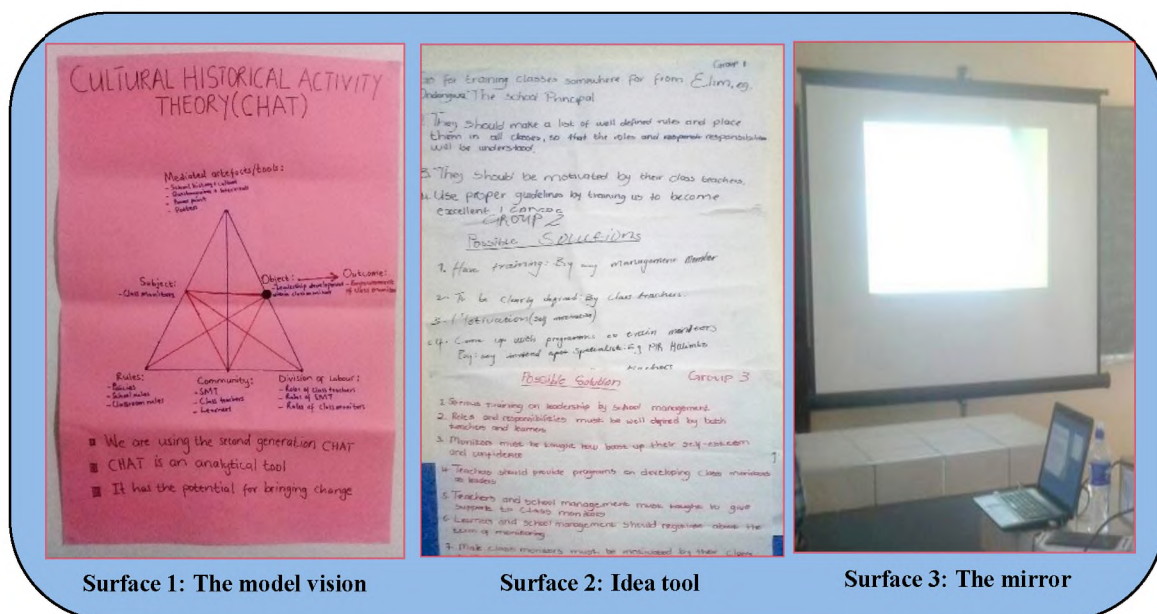 CULTURAL HISTORICAL ACTIVITY
THEORY (CHAT)
Mediated artefacts/tools:
- School history & culture
- Questionnaires & interviews
- Power point
- Posters
Subject:
- Class monitors
Object:
- Leadership development
within class monitors
Outcome:
- Empowerment
of class monitors
Rules:
- Policies
- School rules
- Classroom rules
Community:
- SMT
- Class teachers
- Learners
Division of Labour:
- Roles of class teachers
- Roles of SMT
- Roles of class monitors
We are using the second generation CHAT
CHAT is an analytical tool
It has the potential for bringing change
Surface 1: The model vision
Group 1
for training classes somewhere far from Elim, eg.
Ondangwa: The School Principal
They should make a list of well defined rules and place
them in all classes, so that the roles and responsibilities
will be understood.
3. They should be motivated by their class teachers.
4. Use proper guidelines by training us to become
excellent
GROUP 2
Possible SOLUTIONS
1. Have training: By any management member
2. To be clearly defined: By class teachers.
3. Motivation (self motivation)
4. Come up with programmes to train monitors
Eg: any specialist. Eg Mr
teachers
Possible Solution Group 3
1. Serious training on leadership by school management
2. Roles and responsibilities must be well defined by both
teachers and learners
3. Monitors must be taught how boost up their self-esteem
and confidence
4. Teachers should provide programs on developing class monitors
as leaders
5. Teachers and school management must taught to give
supports to class monitors
6. Learners and school management should negotiate about the
term of monitoring
7. Male class monitors must be motivated by their class
Surface 2: Idea tool
Surface 3: The mirror